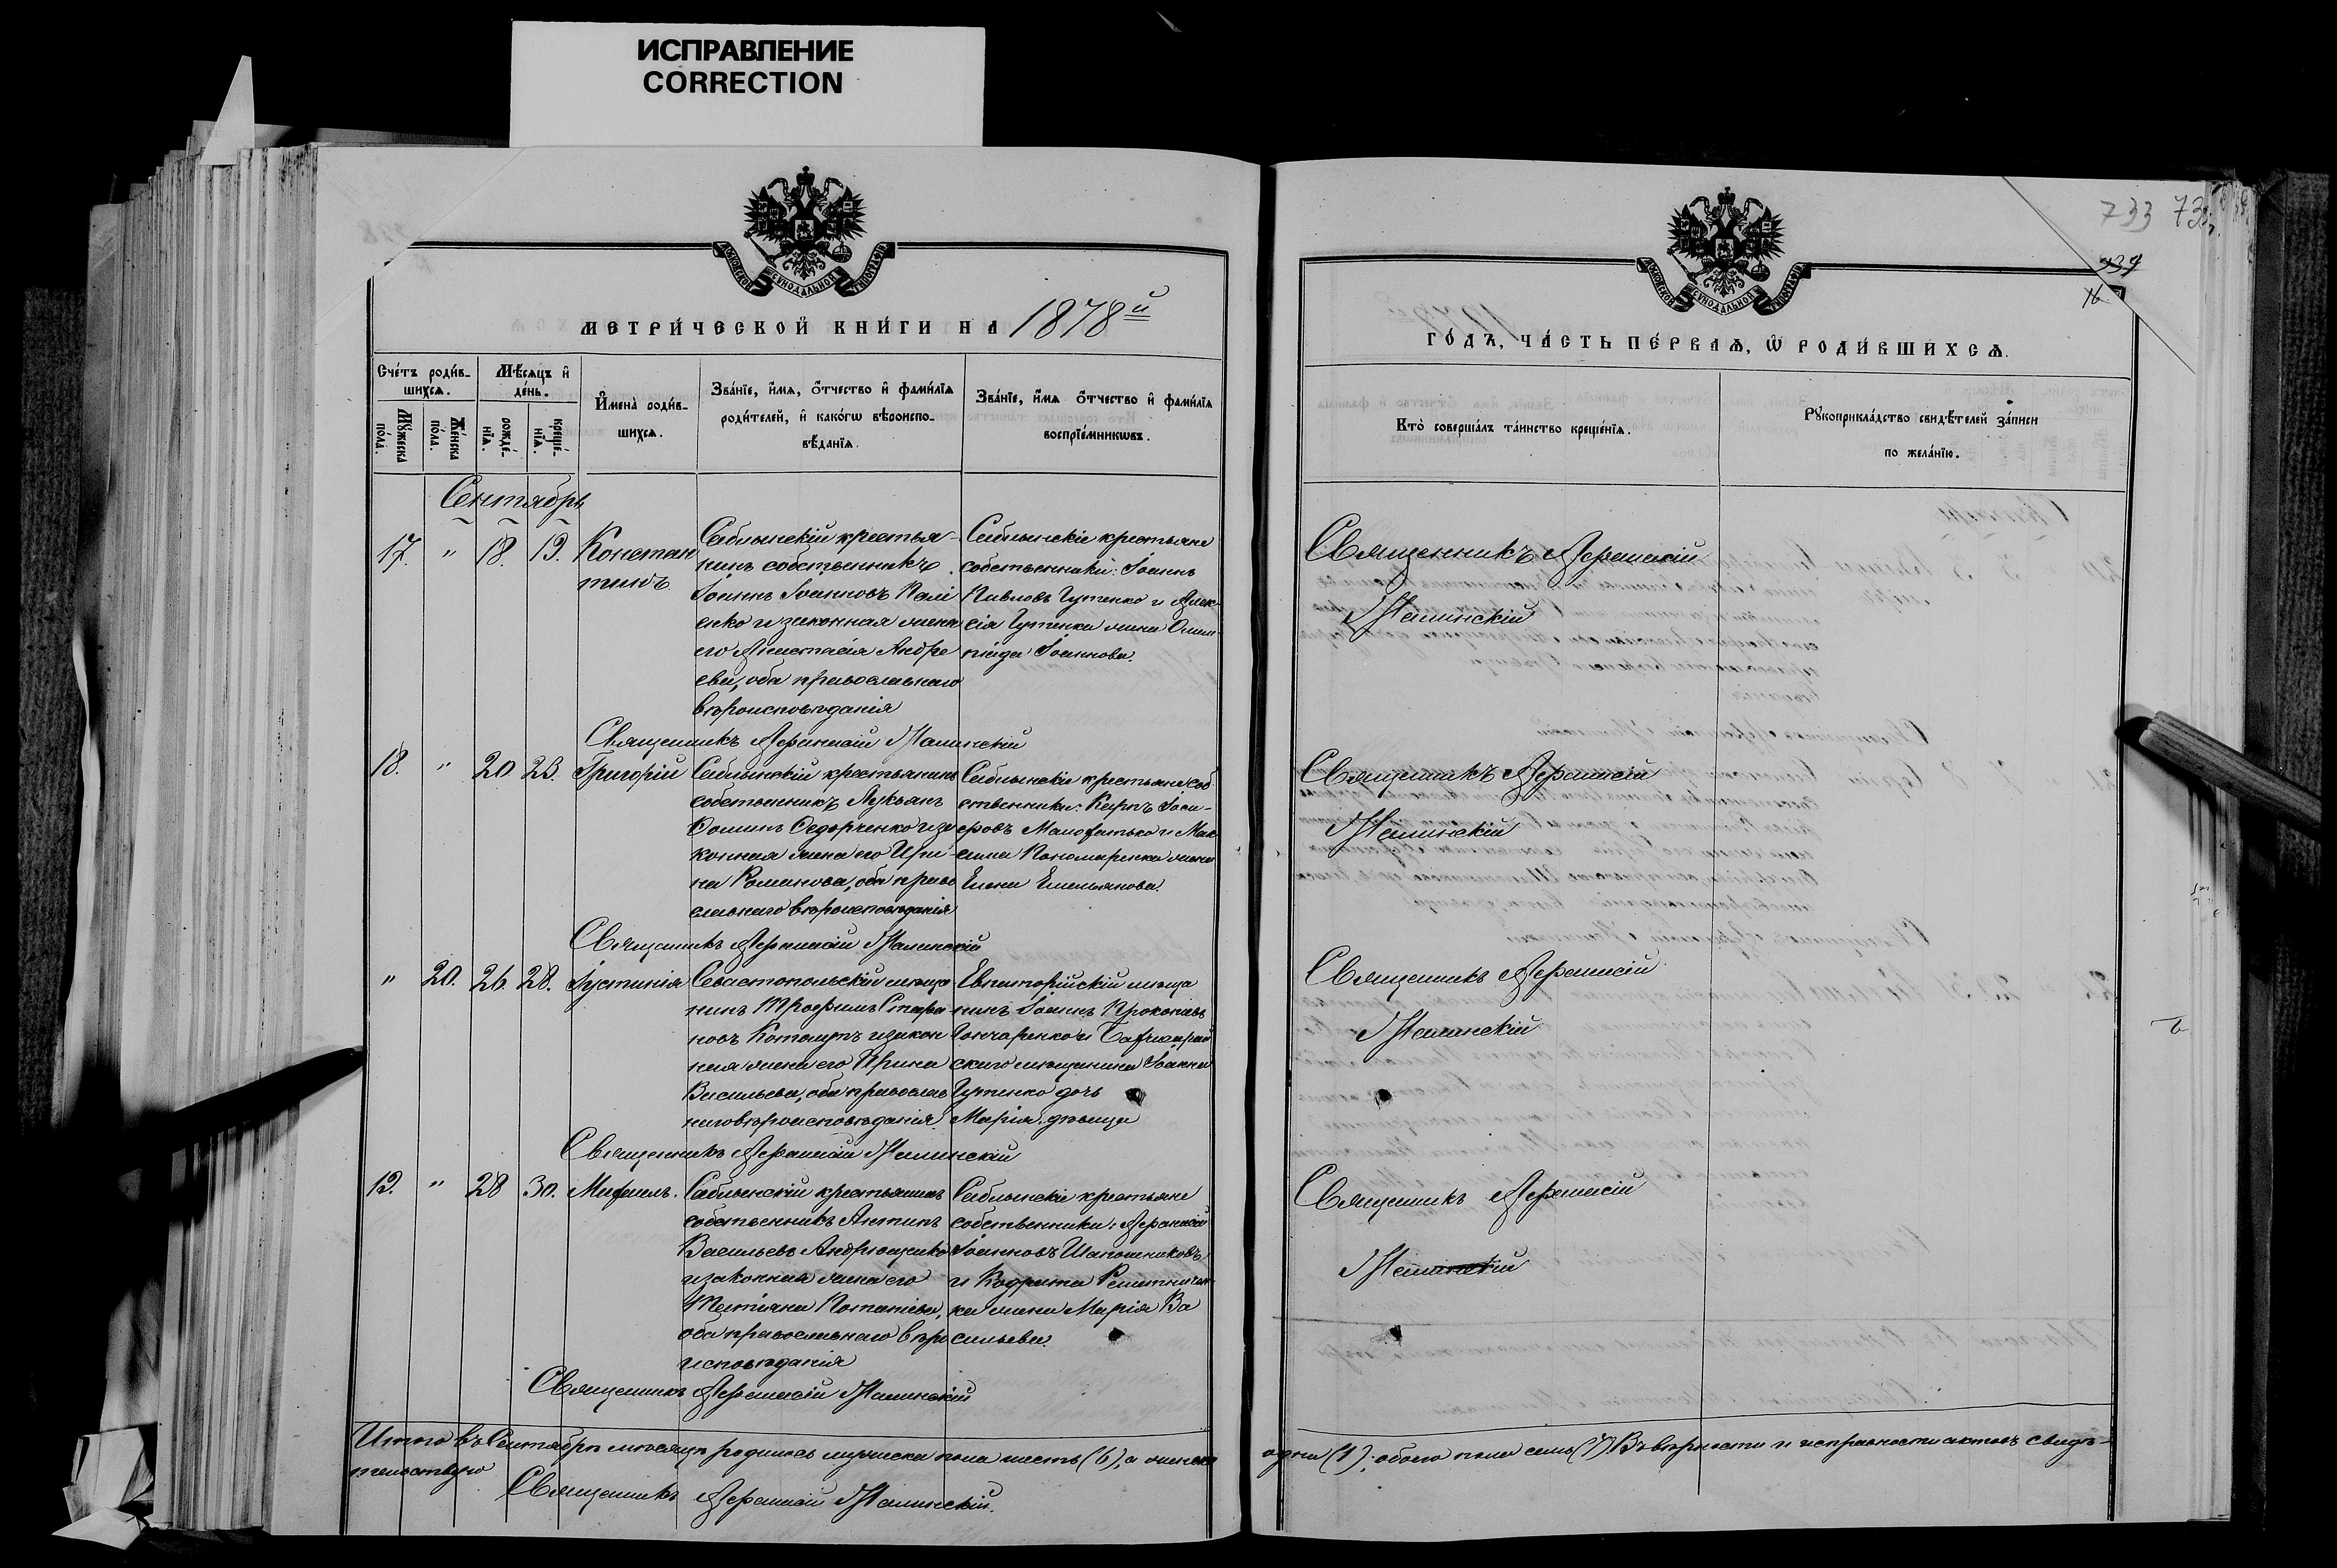 ИСПРАВЛЕНИЕ
CORRECTION
МОСКОВСКОЙ СѴНОДАЛЬНОЙ ТИПОГРАФІИ
МЕТРИ́ЧЕСКОЙ КНИ́ГИ НА 1878й
Сче́тъ роди́в-
шихсѧ.
Мѣ́сяцъ и҆
де́нь.
Мꙋ́жеска
по́ла.
Же́нска
по́ла.
рожде́-
нїѧ.
креще́-
нїѧ.
И҆мена̀ роди́в-
шихсѧ.
Зва́нїе, и҆́мѧ, ѻ҆́тчество и҆ фами́лїѧ
роди́телей, и҆ како́гѡ вѣроиспо-
вѣ́данїѧ.
Зва́нїе, и҆́мѧ ѻ҆́тчество и҆ фами́лїѧ
воспрїе́мникѡвъ.
Сентябрь
17. " 18. 19. Констан
тинъ
Саблынскій крестья-
нинъ собственникъ
Іоаннъ Іоанновъ Палі
енко и законная жена
его Анастасія Андре
ева, оба православнаго
вѣроисповѣданія
Саблынскіе крестьяне
собственники: Іоаннъ
Павловъ Гутенко и Алек
сія Гутенка жена Олим-
піада Іоаннова.
Священникъ Афанасій
18. " 20 23. Григорій
Саблынскій крестьянинъ
собственникъ Лукьянъ
Ѳоминъ Сидорченко и за
конная жена его Ири-
на Романова, оба право
славнаго вѣроисповѣданія
Саблынскіе крестьяне соб
ственники: Карпъ Іоси-
фовъ и Мак
сима Пономаренка жена
Елена Емельянова.
Священникъ Афанасій
" 20. 26. 28. Іустинія
Севастопольскій мѣща
нинъ Трофимъ
и закон
ная жена его Ирина
Васильева, оба православ
наго вѣроисповѣданія
Евпаторійскій мѣща
нинъ Іоаннъ Прокопьевъ
Гончаренко и
скаго мѣщанина Іоанна
Гутенко дочь
Марія дѣвица
Священникъ Афанасій
19. " 28 30. Михаилъ.
Саблынскій крестьянинъ
собственникъ Антипъ
Васильевъ Андрющенко
и законная жена его
Татіана Потапіева,
оба православнаго вѣро
исповѣданія
Саблынскіе крестьяне
собственники: Афанасій
Іоанновъ Шапошниковъ
и Кодрата
ка жена Марія Ва
сильева.
Священникъ Афанасій
Итого въ Сентябрѣ мѣсяцѣ родилось мужеска пола шесть (6), а женска
тельствую
Священникъ Афанасій
733
734
16
МОСКОВСКОЙ СѴНОДАЛЬНОЙ ТИПОГРАФІИ
ГО́ДЪ, ЧА́СТЬ ПЕ́РВАѦ, Ѡ҆ РОДИ́ВШИХСѦ.
Кто̀ соверша́лъ та́инство креще́нїѧ.
Рꙋкоприкла́дство свидѣ́телей за́писи
по жела́нїю.
Священникъ Афанасій
Священникъ Афанасій
Священникъ Афанасій
Священникъ Афанасій
одна (1); обоего пола семь (7) Въ вѣрности и исправности актовъ свидѣ-